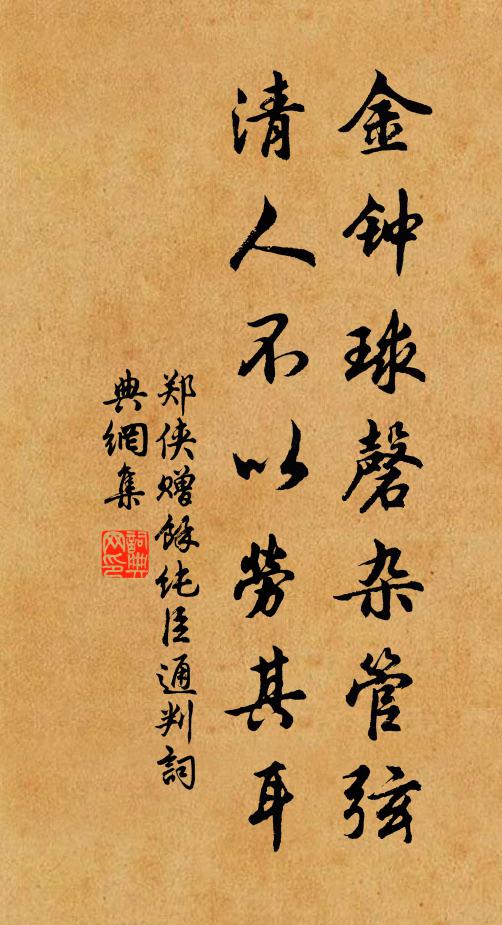 金钟球磬杂管弦
清人不以劳其耳
郑侠赠馀纯臣通判词
典網集
詞典
网印